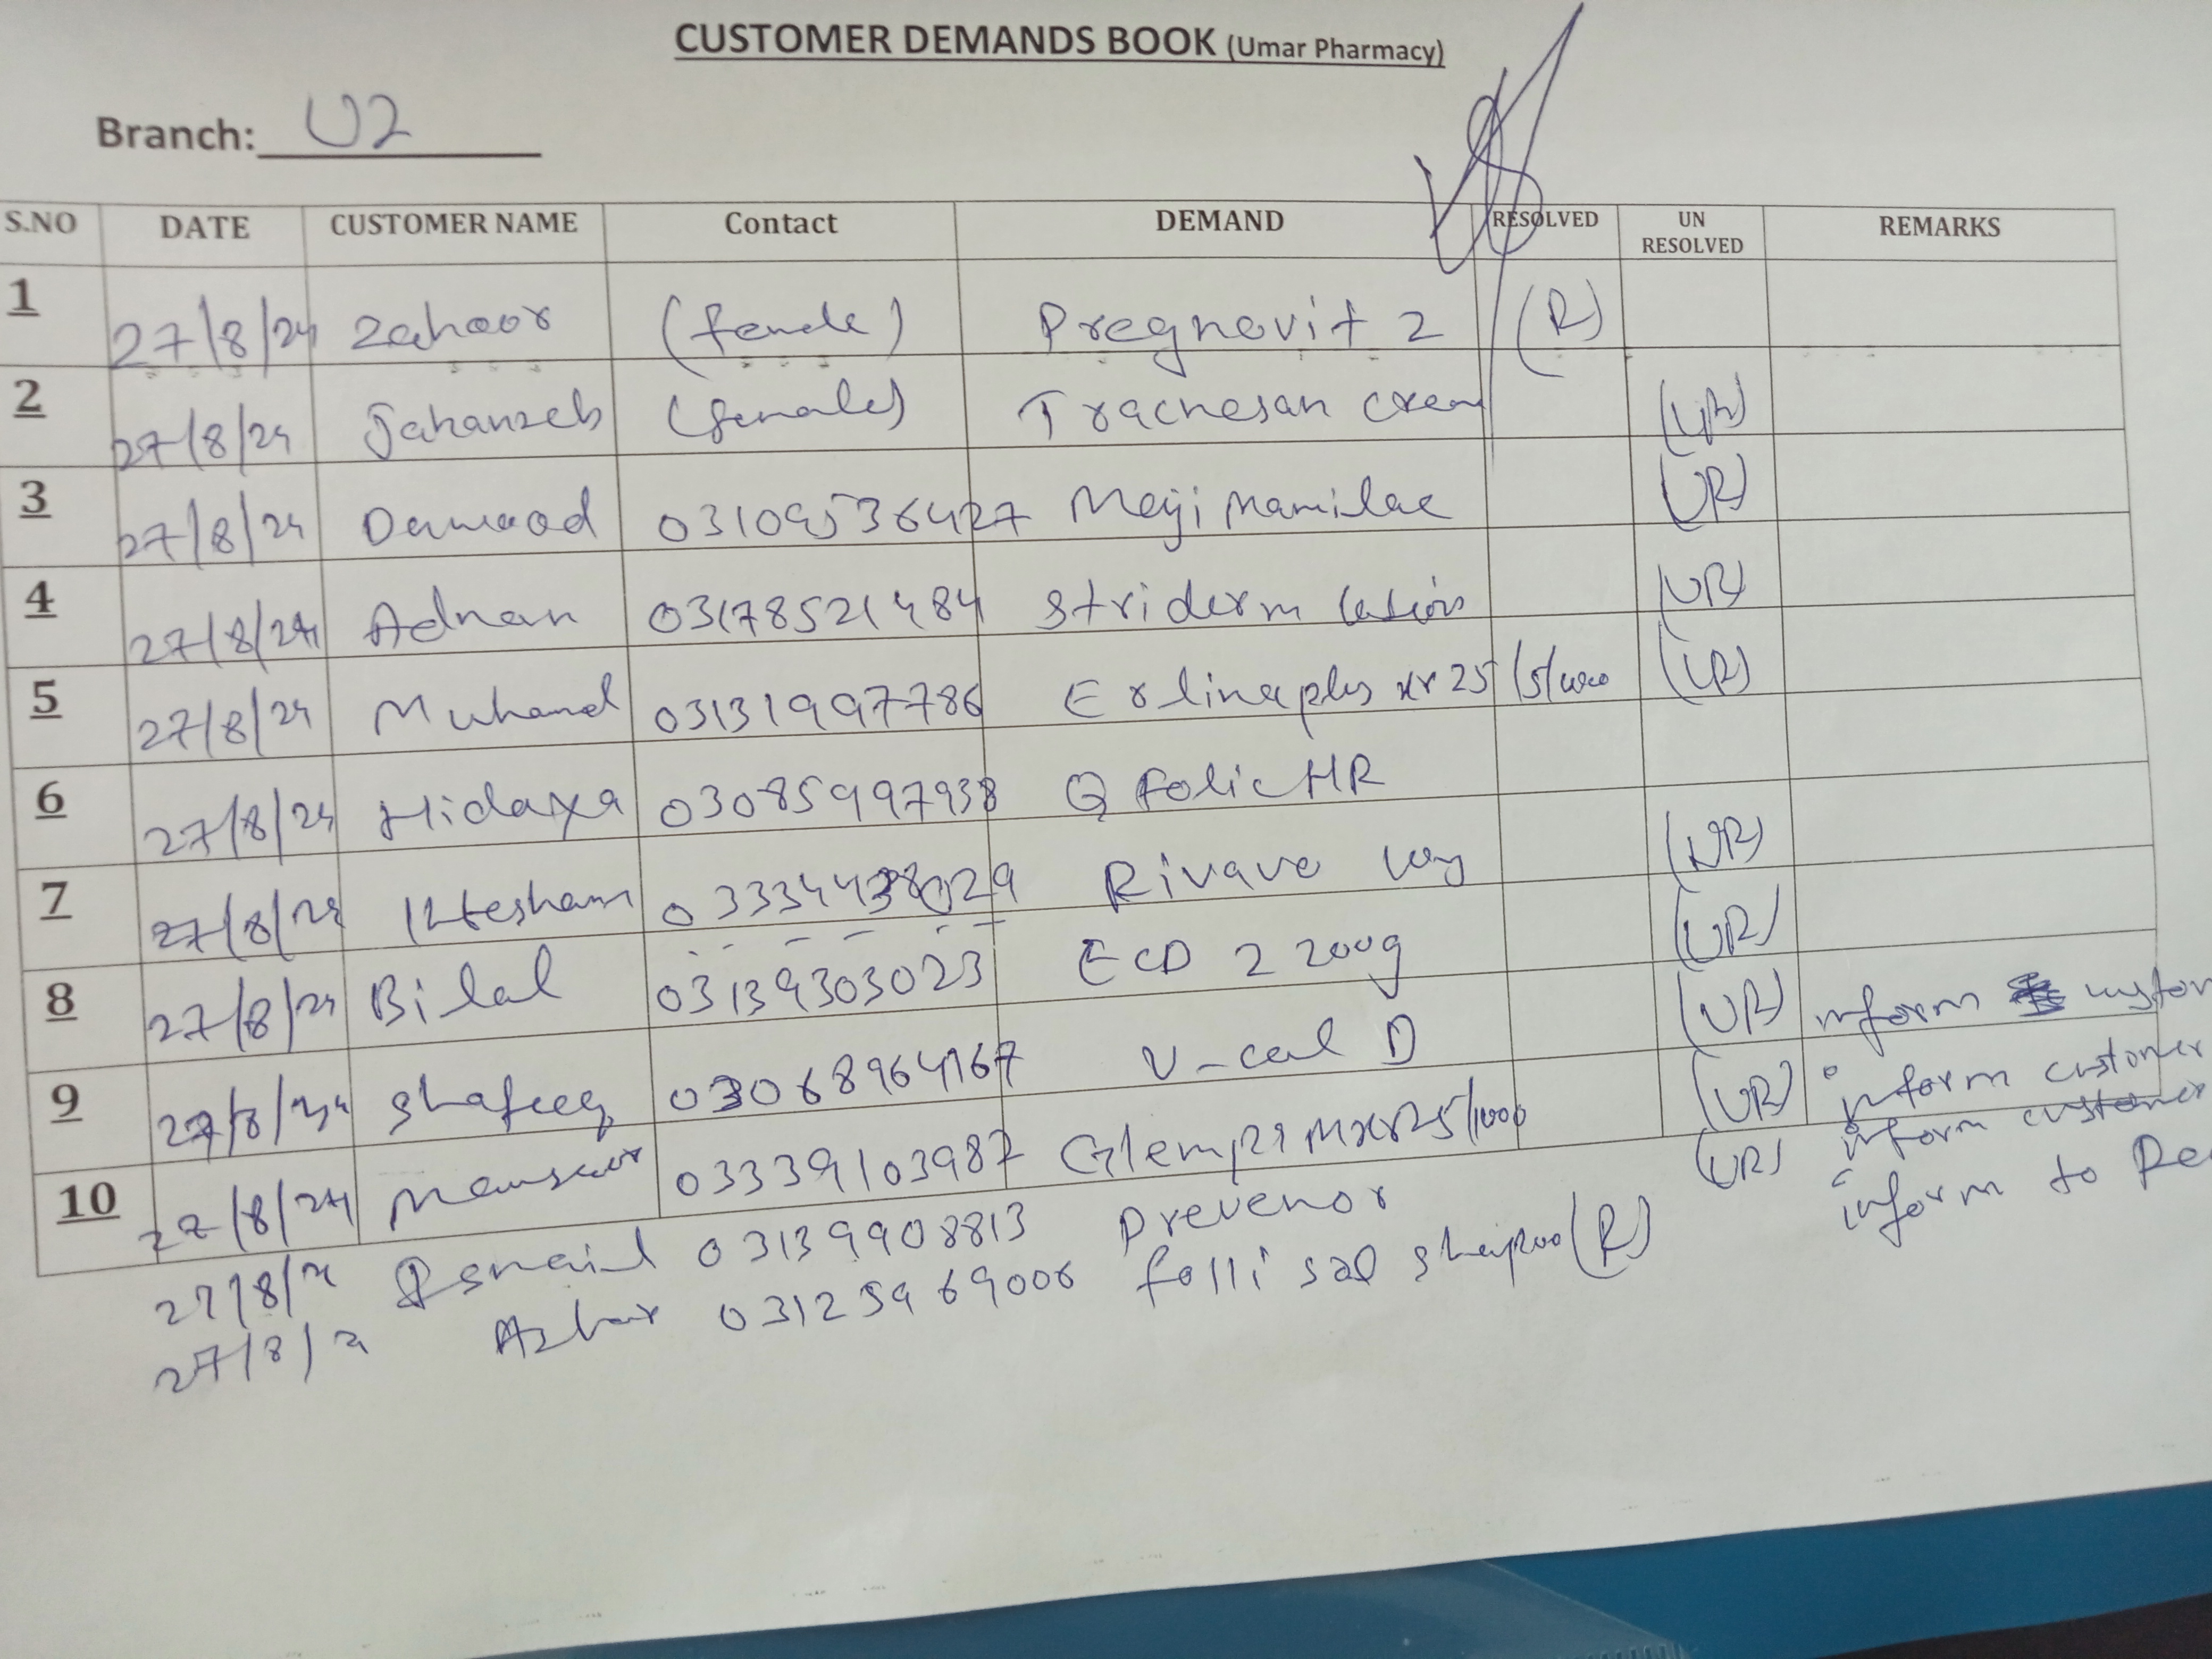 CUSTOMER DEMANDS BOOK (Umar Pharmacy)
Branch: U2
S.NO DATE CUSTOMER NAME Contact DEMAND RESOLVED UN RESOLVED REMARKS
1 27/8/24 Zahoor (female) Pregnovit 2 (R)
2 27/8/24 Jahanzeb (female) Tracnesan cream (UR)
3 27/8/24 Dawood 03109536427 Meiji Mamilac (UR)
4 27/8/24 Adnan 03178521484 Striderm lotion (UR)
5 27/8/24 Muhamd 03131997786 Erlina plus xr 25/5/1000 (UR)
6 27/8/24 Hidaya 03085997938 Q Folic HR
7 27/8/24 Ihtesham Rivavo (UR)
8 27/8/24 Bilal 03139303023 ECD 2 200g (UR)
9 27/8/24 Shafeeq 03068964167 V-cal D (UR) inform custom
10 27/8/24 Mansoor 03339103987 Glempa Mxr 25/1000 (UR) inform customer
27/8/24 Ismail 03139908813 Prevenor (UR) inform customer
27/8/24 Azhar 03125969006 folli sal shapoo (R) inform to Re